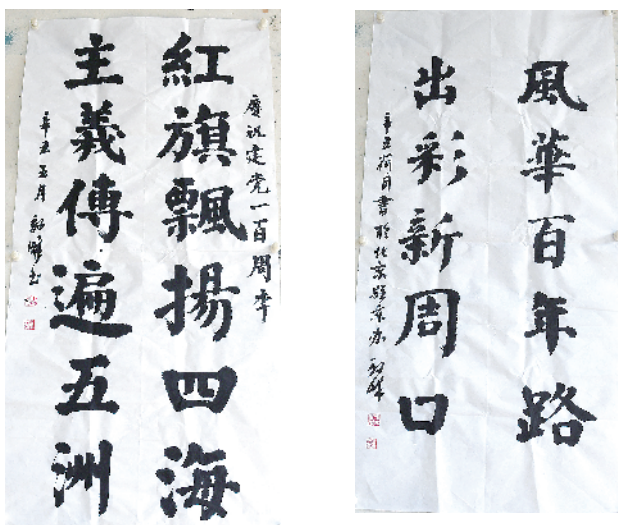 慶祝建党一百周年
紅旗飄揚四海
主義傳遍五洲
辛丑五月
風華百年路
出彩新周口
辛丑荷月書於北京